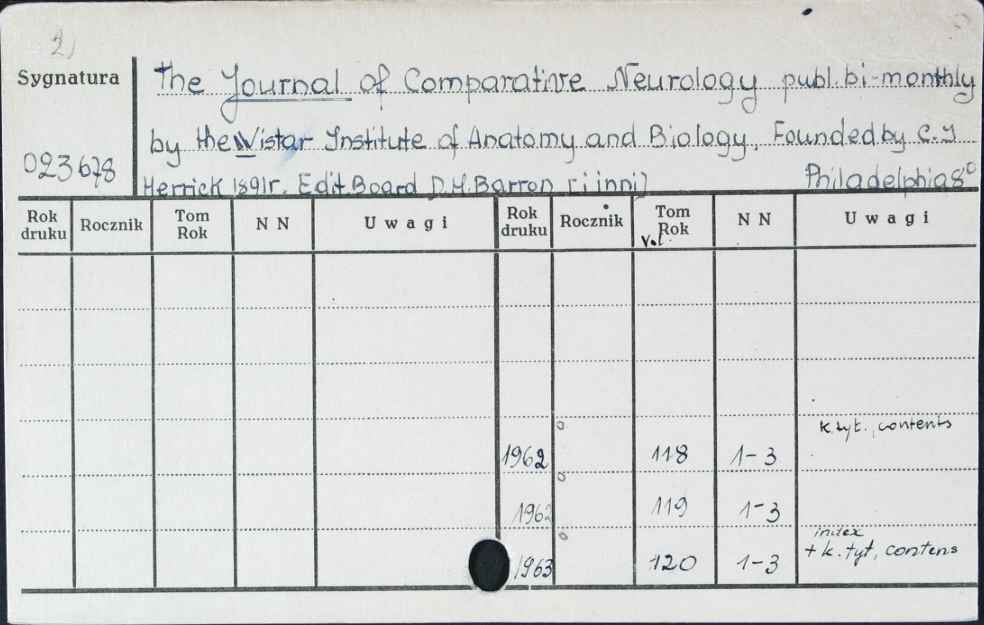 2)
Sygnatura
023678
The Journal of Comparative Neurology publ. bi-monthly
by the Wistar Institute of Anatomy and Biology. Founded by C. J
Herrick 1891r. Edit. Board D. H. Barron [i inni] Philadelphia 8°
Rok druku Rocznik Tom Rok N N Uwagi Rok druku Rocznik Tom Vol. Rok N N Uwagi
1962 118 1-3 k. tyt., contents
1962 119 1-3
1963 120 1-3 index + k. tyt, contens